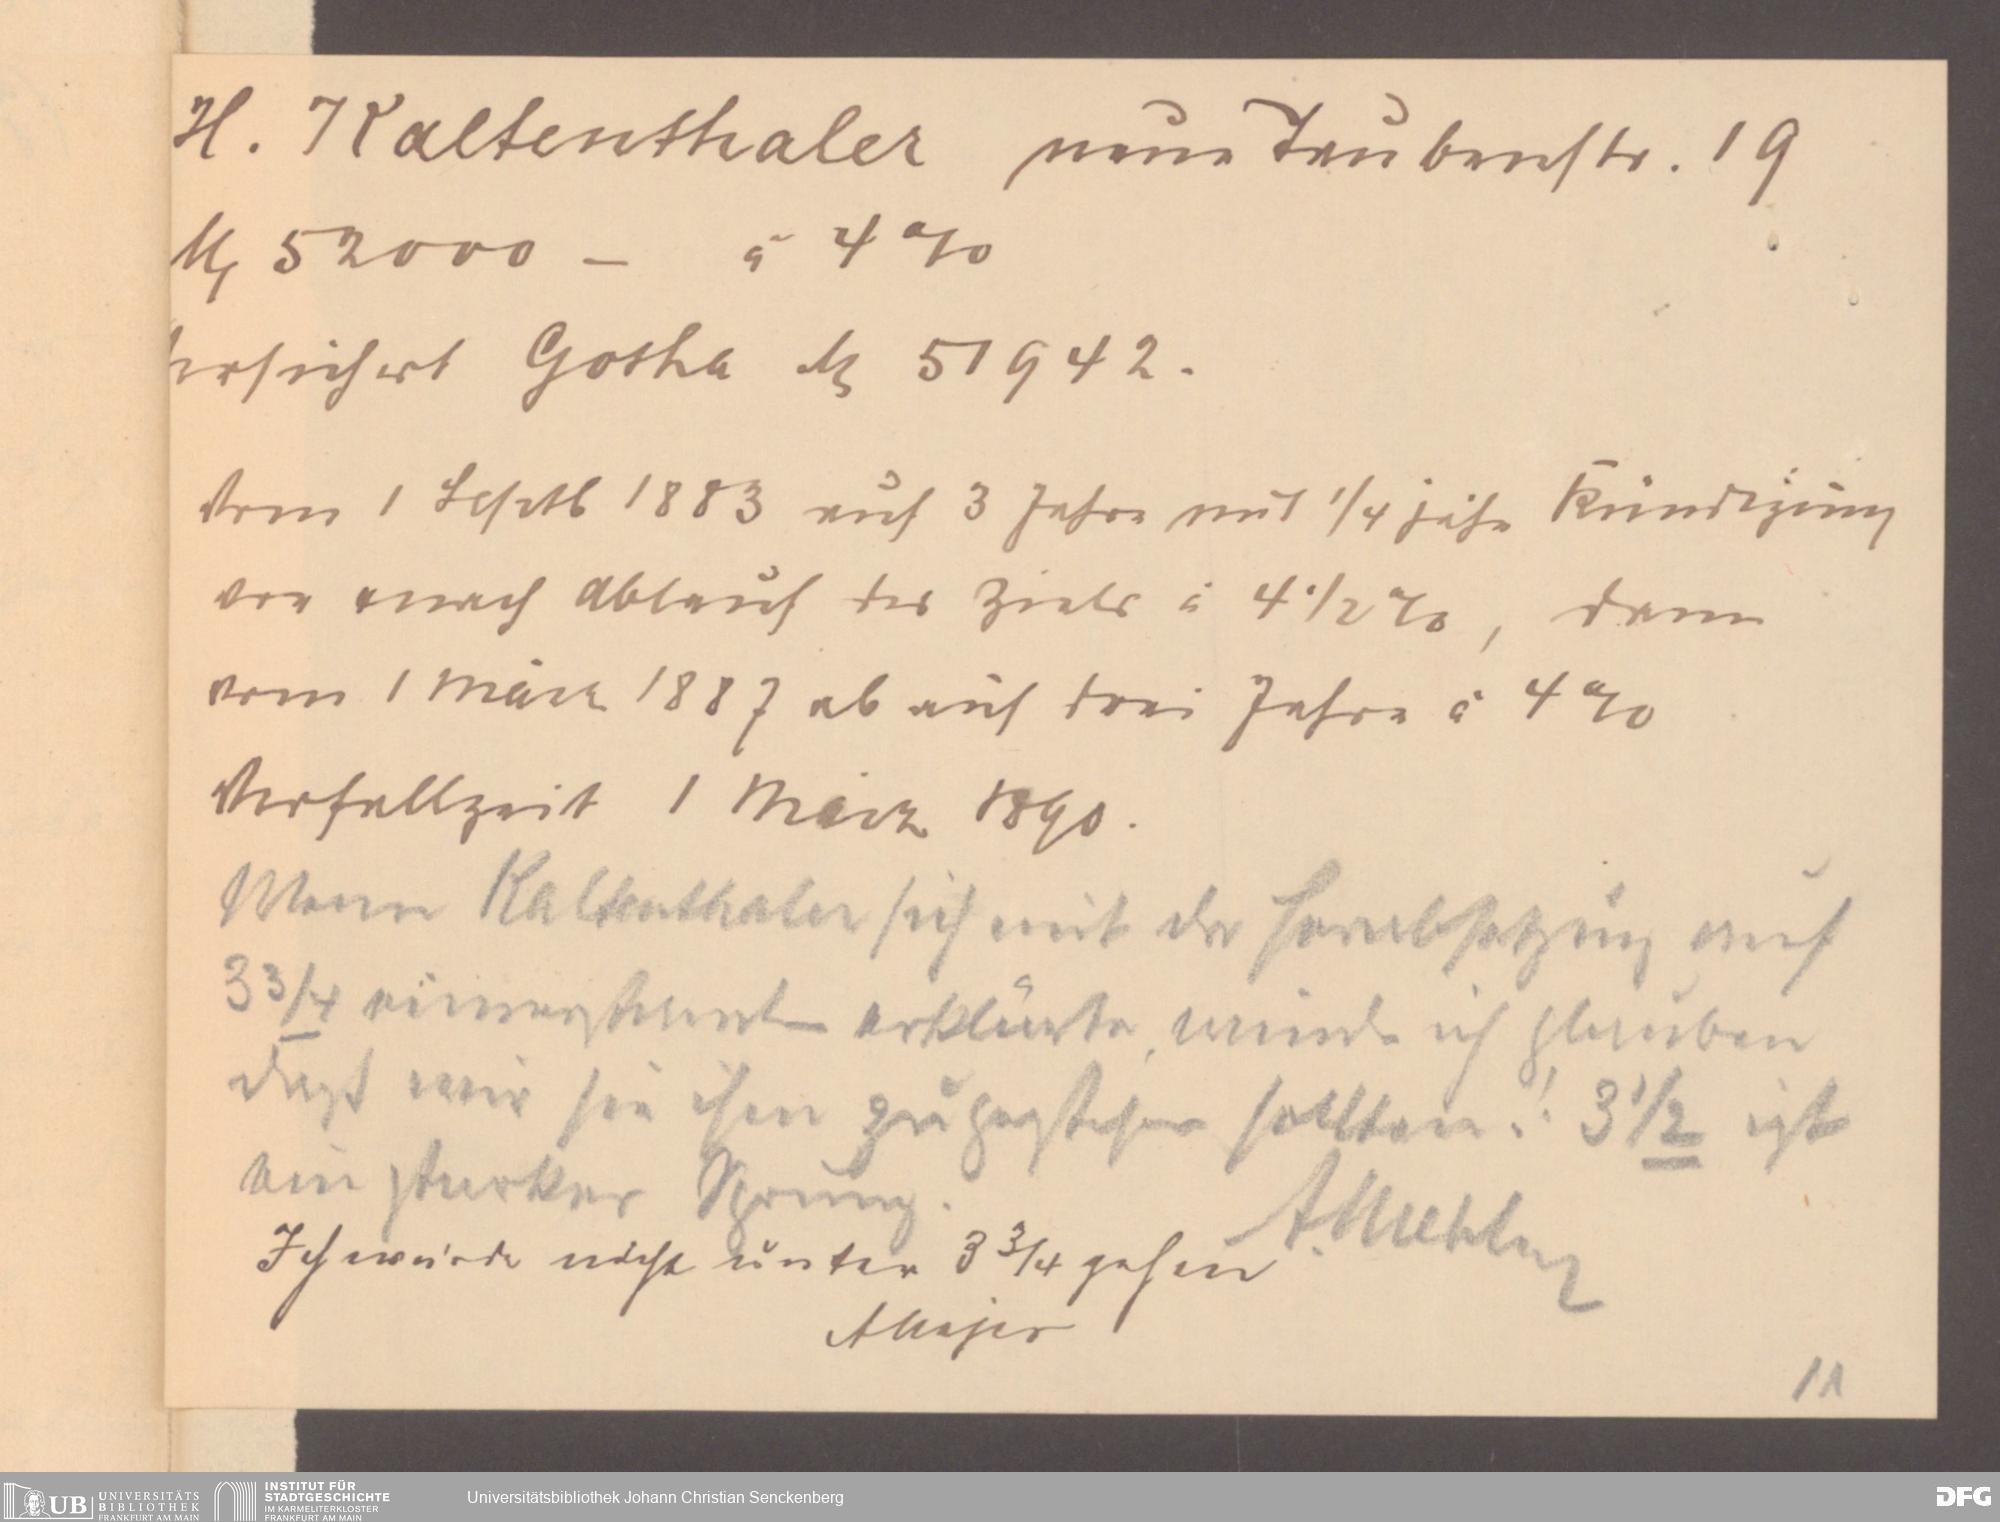 H. Kaltenthaler neue Taubenstr. 19
M 52000 – à 4 %
Versichert Gotha M 51942.
Vom 1 Septb 1883 auf 3 Jahre mit 1/4 jähr Kündigung
vor u nach Ablauf des Ziels à 4 1/2 %, dann
vom 1 März 1887 ab auf drei Jahre à 4 %
Verfallzeit 1 März 1890.
Wenn Kaltenthaler sich mit der Herabsetzung auf
3 3/4 einverstanden erklärte, würde ich glauben
dass wir sie ihm zugestehen sollten! 3 1/2 ist
ein starker Sprung.
Ich würde nicht unter 3 3/4 gehen
A Majer
11
UB UNIVERSITÄTS
BIBLIOTHEK
FRANKFURT AM MAIN
INSTITUT FÜR
STADTGESCHICHTE
IM KARMELITERKLOSTER
FRANKFURT AM MAIN
Universitätsbibliothek Johann Christian Senckenberg
DFG